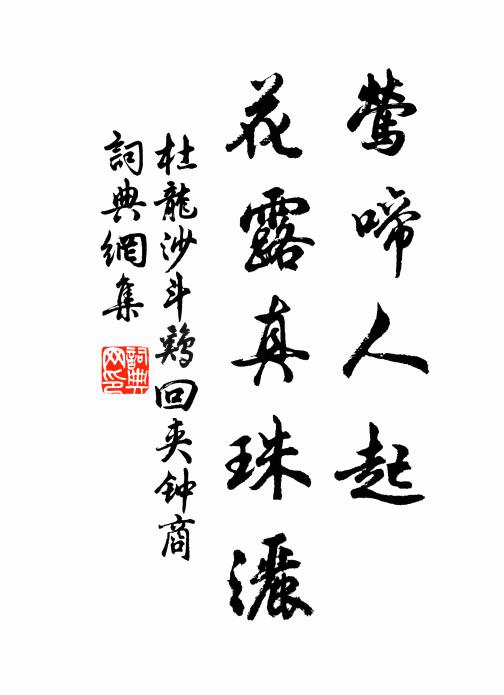 鶯啼人起
花露真珠灑
杜龍沙斗鷄回夹钟商
詞典網集
詞典
网印